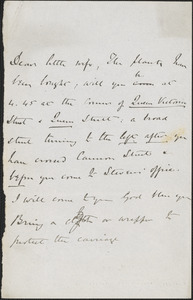 Dear little wife, The plants have
been bought; will you come at
4.45 at the corner of Queen Victoria
Street & Queen Street; a broad
street turning to the left after you
have crossed Cannon Street &
before you come to Stevens' office.
I will come to you God bless you
Bring a cloth or wrapper to
protect the carriage